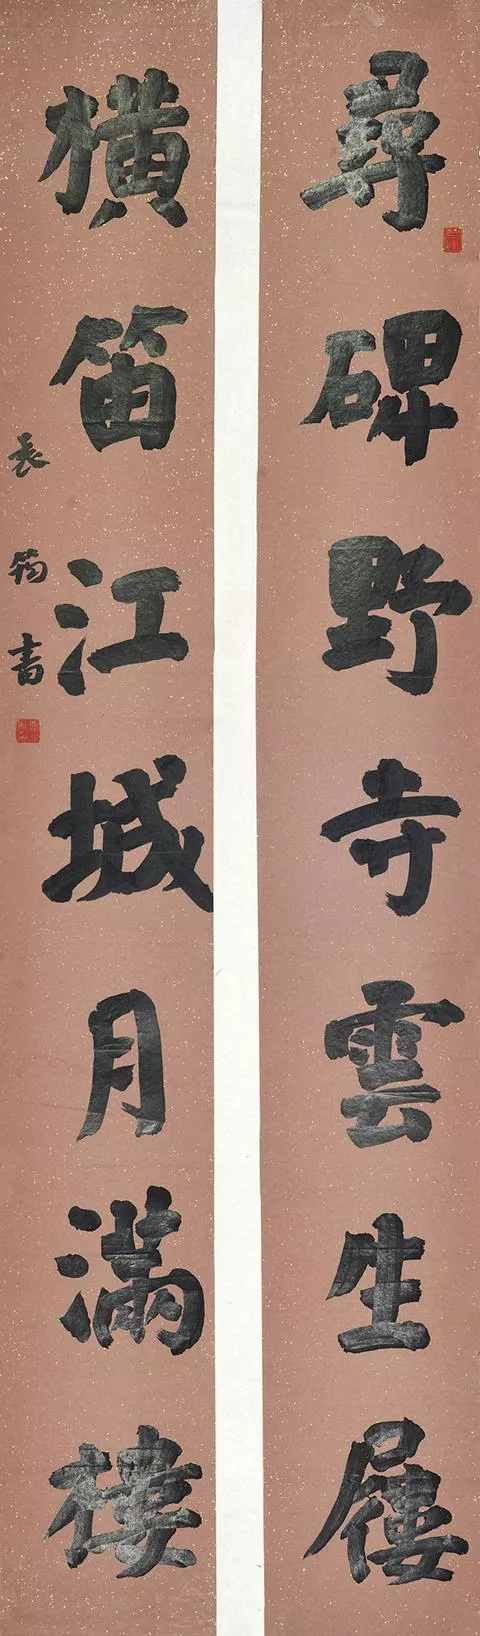 尋碑野寺雲生屨
橫笛江城月滿樓
裴筠書